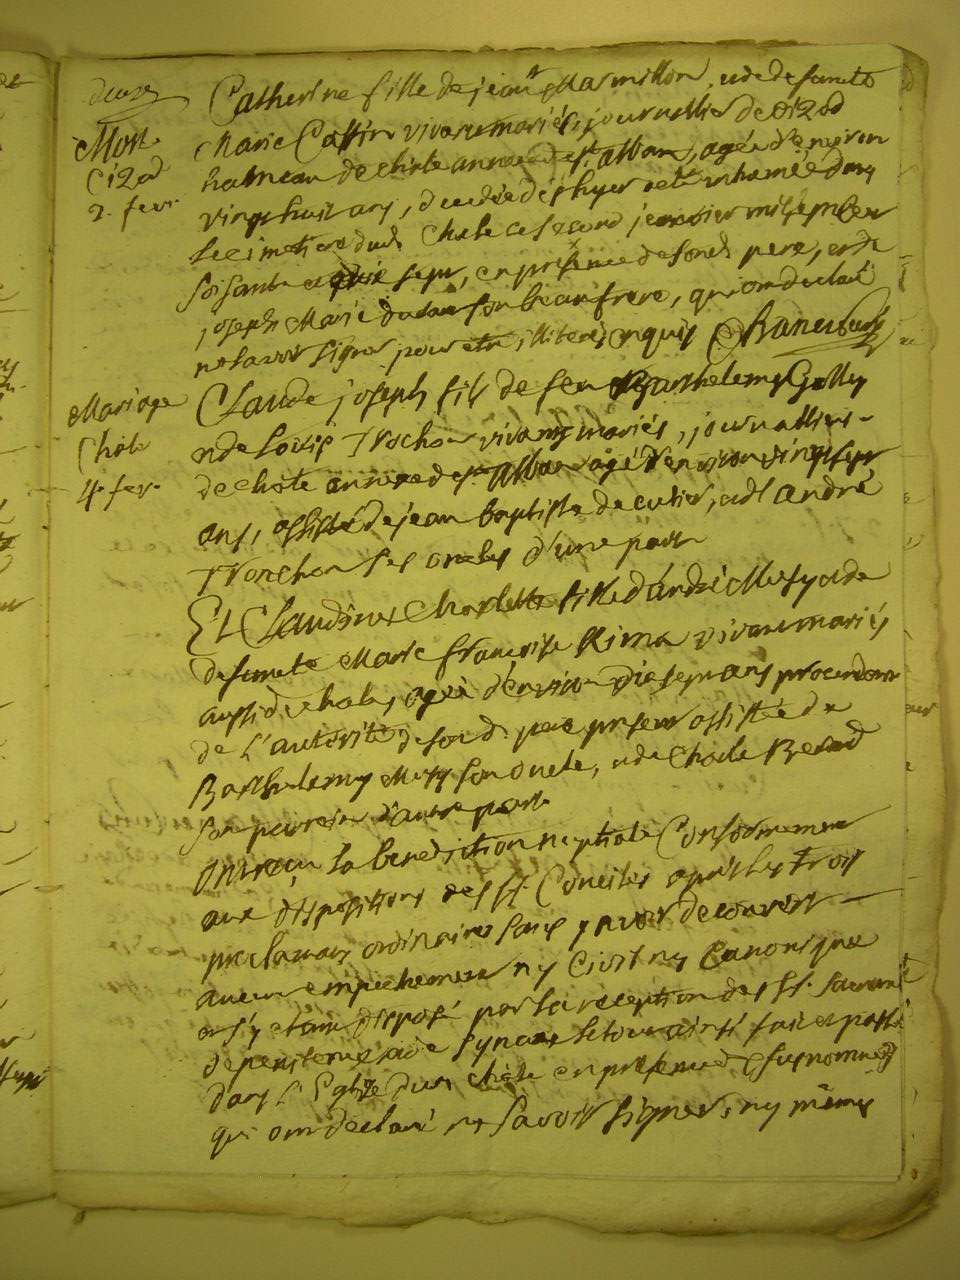 deuze
Mort
Cizod
2. fevr.
Catherine fille de jean Marmillon, et de defuncte
Marie Cattin vivants mariés, journallier de Cizod
hameau de Chole annexe de st. alban, agée d'environ
vingt huit ans, decedée dès hyer a eté inhumée dans
le cimetiere dud. Chole ce second jeanvier mil sept cent
soisante et sept, en présence de sond. pere, et de
joseph Marie son beaufrere, qui ont declaré
ne savoir signer pour etre illiterés enquis
Mariage
Chole
4. fev.
Claude joseph fils de feu Barthelemy Golly
et de Louise Trochon vivants mariés, journalliers
de Chole annexe de st. alban agé d'environ vingt sept
ans, assisté de jean baptiste decutier, et d'andré
Tronchon ses oncles d'une part
Et Claudine Charlotte fille d'andré Mery et de
defuncte Marie françoise Rima vivants mariés
aussi de Chole, agée d'environ diesept ans procedant
de L'autorité de sond. pere present assistée de
Barthelemy Mery son oncle, et de Charle Berod
son parrein d'autre part
Ont reçu la benediction nuptiale Conformement
aux dispositions des SS. Conciles après les trois
proclamats ordinaires sans y avoir decouvert
aucun empéchement ny Civil ny Canonique
et s'y etant disposé par la réception des SS. Sacrements
de penitence et de le tout ainsi fait et passé
dans L'Eglise dud. Chole en présence des susnommés
qui ont declaré ne savoir signer, ny mêmes